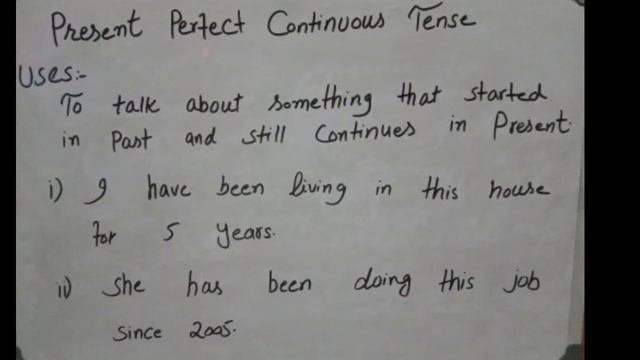 Present Perfect Continuous Tense
Uses:-
To talk about something that started
in Past and still Continues in Present.
i) I have been living in this house
for 5 years.
ii) She has been doing this job
since 2005.